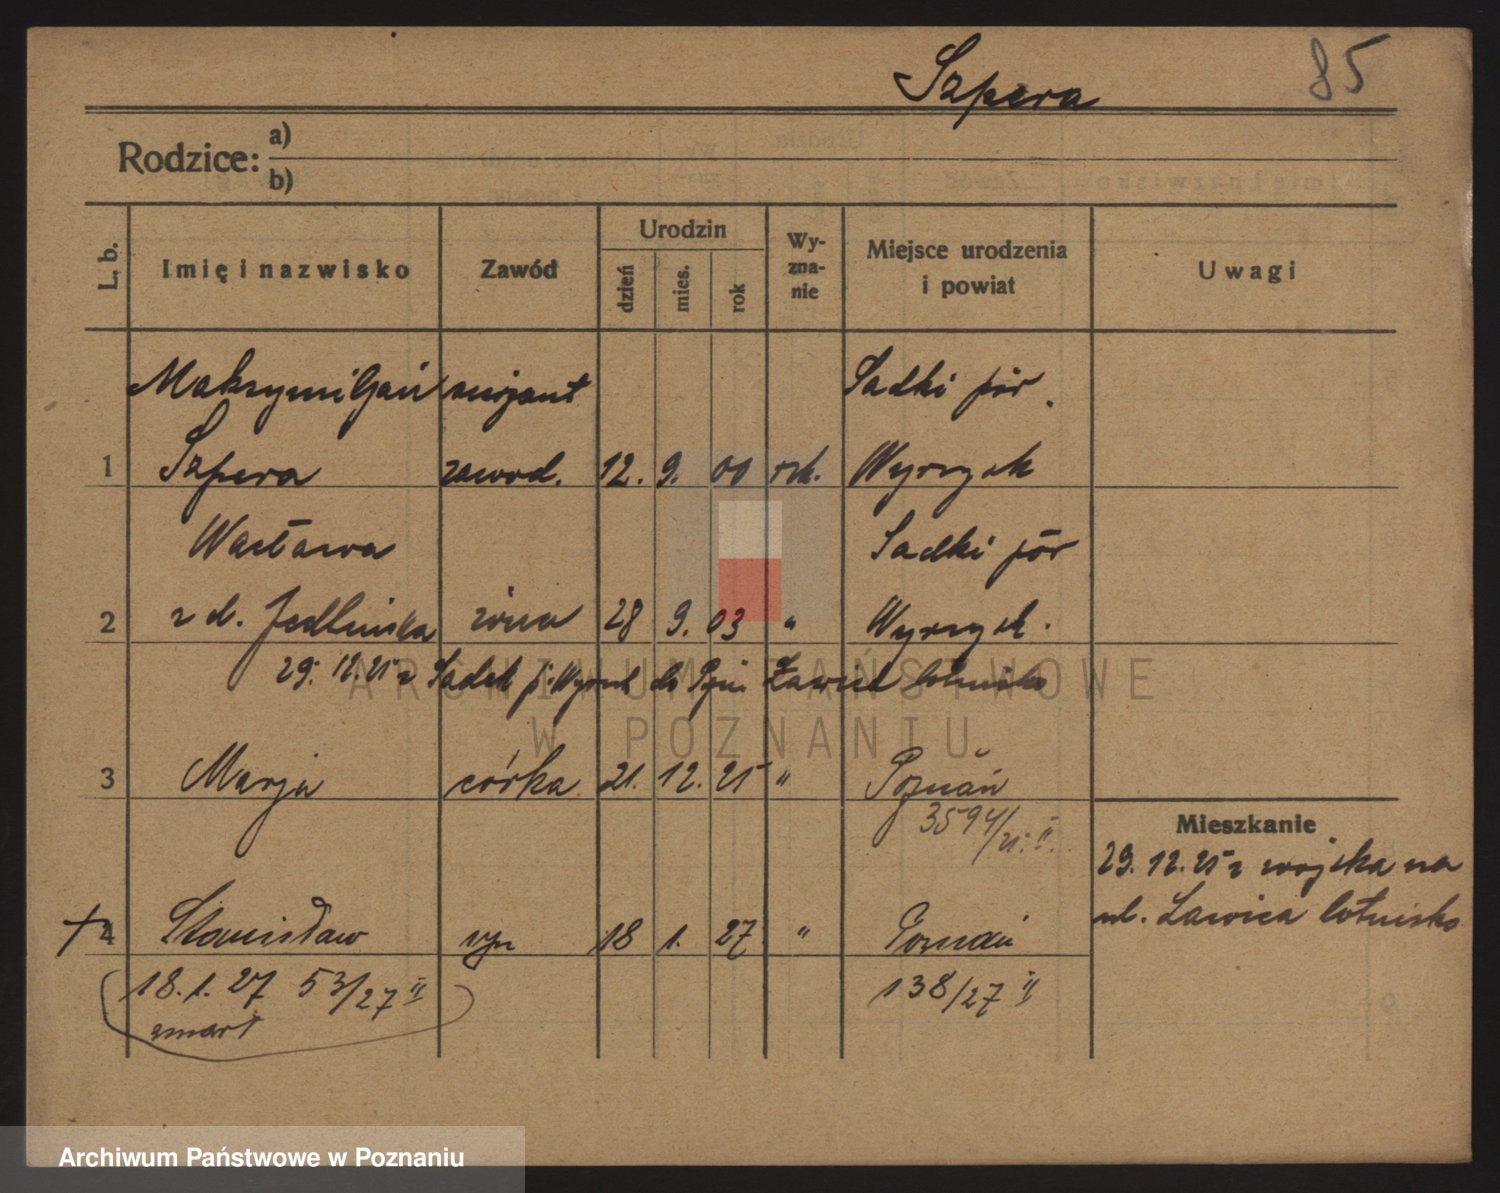 Szpera 85
Rodzice: a)
b)
L. b. Imię i nazwisko Zawód Urodzin dzień mies. rok Wy-zna-nie Miejsce urodzenia i powiat Uwagi
Maksymiljan sierżant Sadki pow.
1 Szpera zawod. 12. 9. 00 rzk. Wyrzysk
Wacława Sadki pow
2 z d. Jedlińska żona 28 9. 03 " Wyrzysk.
29. 12. 25 z Sadek p. Wyrzysk do Pozn. Ławica lotnisko
3 Marja córka 21. 12. 25 " Poznań
3594/25. II.
Mieszkanie
29. 12. 25 z wojska na
ul. Ławica lotnisko
+ 4 Stanisław syn 18 1. 27 " Poznań
18. 1. 27 53/27 II 138/27 II
zmarł
ARCHIWUM PAŃSTWOWE
W POZNANIU
Archiwum Państwowe w Poznaniu